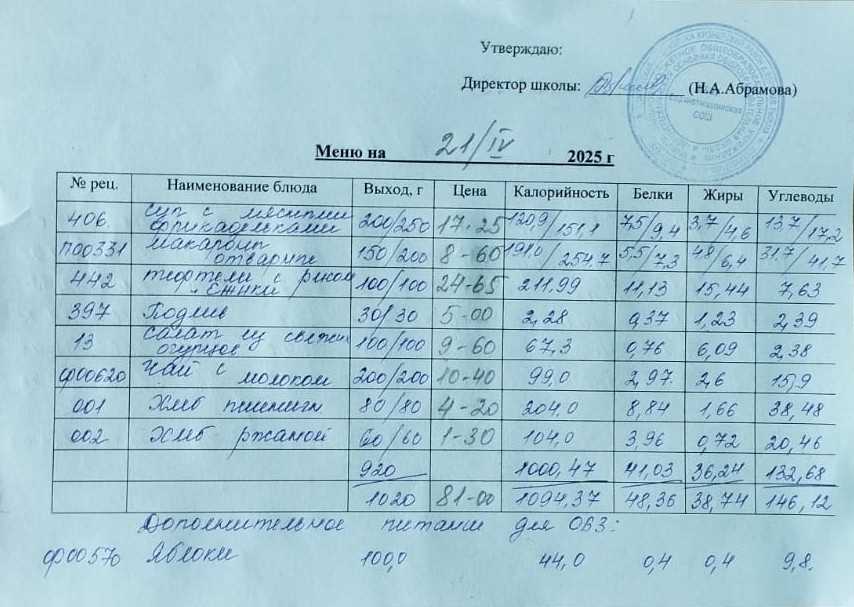 Утверждаю:
Директор школы: (Н.А.Абрамова)
Меню на 21/IV 2025 г
№ рец. Наименование блюда Выход, г Цена Калорийность Белки Жиры Углеводы
406. Суп с мясными фрикадельками 200/250 17-25 120,9/151,1 7,5/9,4 3,7/4,6 13,7/17,2
П00331 Макароны отварные 150/200 8-60 191,0/254,7 5,5/7,3 4,8/6,4 31,7/41,7
442 тефтели с рисом "Ёжики" 100/100 24-65 211,99 11,13 15,44 7,63
397 Подлив 30/30 5-00 2,28 0,37 1,23 2,39
13 Салат из свежих огурцов 100/100 9-60 67,3 0,76 6,09 2,38
ф00620 Чай с молоком 200/200 10-40 99,0 2,97. 2,6 15,9
001 Хлеб пшеничн 80/80 4-20 204,0 8,84 1,66 38,48
002 Хлеб ржаной 60/60 1-30 104,0 3,96 0,72 20,46
920 1000,47 41,03 36,24 132,68
1020 81-00 1094,37 48,36 38,74 146,12
Дополнительное питание для ОВЗ:
ф00570 Яблоки 100,0 44,0 0,4 0,4 9,8.